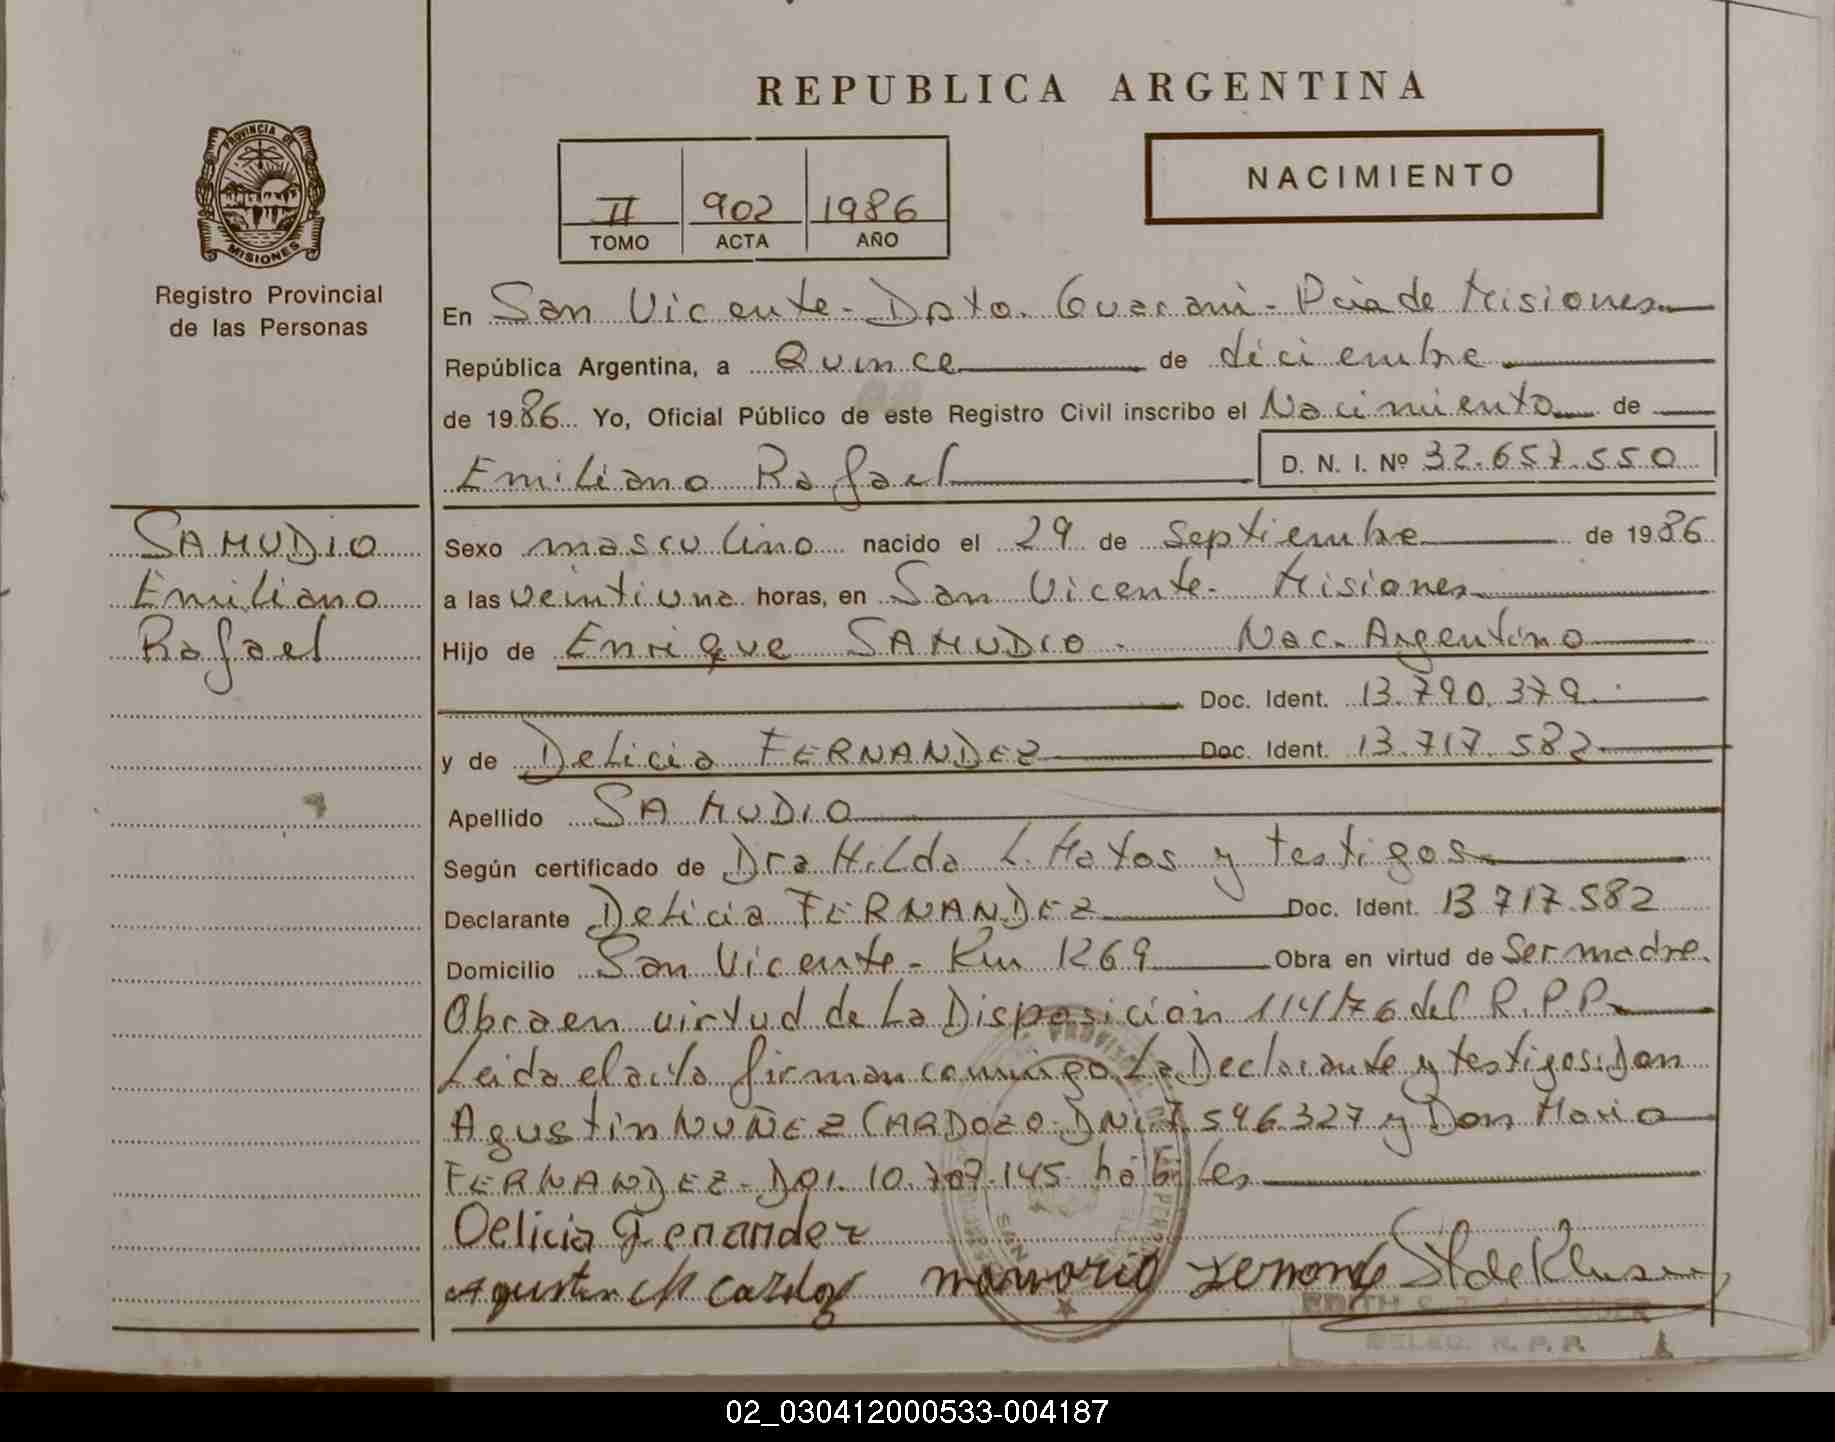 REPUBLICA ARGENTINA
NACIMIENTO
II 902 1986
TOMO ACTA AÑO
PROVINCIA DE
MISIONES
Registro Provincial
de las Personas
En San Vicente - Dpto. Guarani - Pcia de Misiones
República Argentina, a Quince de diciembre
de 1986 Yo, Oficial Público de este Registro Civil inscribo el Nacimiento de
Emiliano Rafael D. N. I. Nº 32.657.550
SAMUDIO
Emiliano
Rafael
Sexo masculino nacido el 29 de Septiembre de 1986
a las veintiuna horas, en San Vicente - Misiones
Hijo de Enrique SAMUDIO - Nac. Argentino
Doc. Ident. 13.790.379
y de Delicia FERNANDEZ Doc. Ident. 13.717.582
Apellido SAMUDIO
Según certificado de Dra Hilda L. Matos y testigos
Declarante Delicia FERNANDEZ Doc. Ident. 13 717.582
Domicilio San Vicente - Km 1269 Obra en virtud de Ser madre.
Obra en virtud de La Disposición 114/76 del R.P.P.
Leida el acta firman conmigo La Declarante y testigos: Don
Agustin NUÑEZ CARDOZO - DNI. 7.596.327 y Don Mario
FERNANDEZ - DNI. 10.707.145 hábiles
Delicia Fenander
Agustin cardoz
SAN
EDITH
DELEG. R. P. P.
02_030412000533-004187